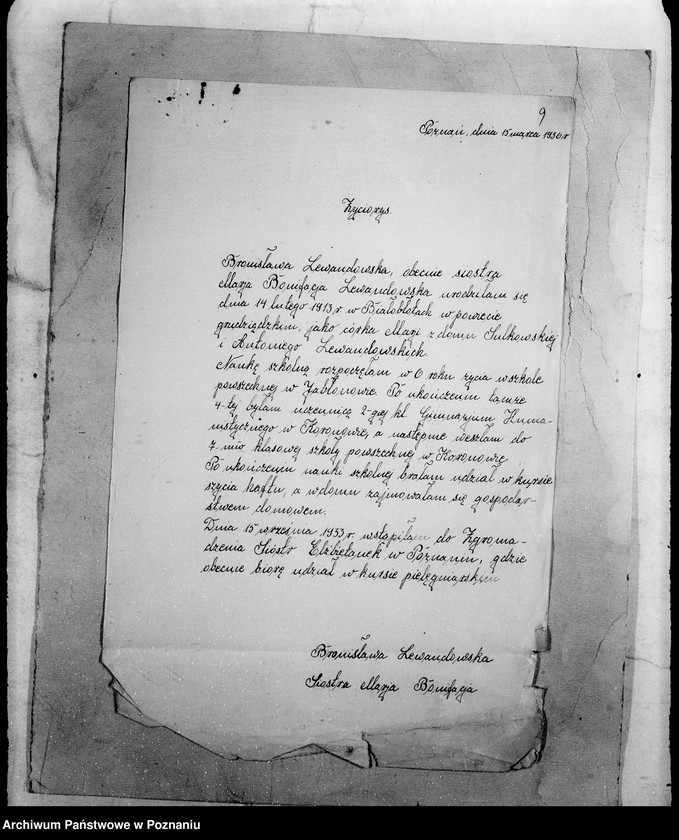 9
Poznań, dnia 15 marca 1936 r
Życiorys.
Bronisława Lewandowska, obecnie siostra
Marja Bonifacja Lewandowska urodziłam się
dnia 14 lutego 1913 r. w Białobłotach w powiecie
grudziądzkim, jako córka Marji z domu Sulkowskiej
i Antoniego Lewandowskich.
Naukę szkolną rozpoczęłam w 6 roku życia w szkole
powszechnej w Jabłonowie. Po ukończeniu tamże
4-tej byłam uczennicą 2-giej kl. Gimnazjum Huma-
nistycznego w Koronowie, a następnie weszłam do
7-mio klasowej szkoły powszechnej w Koronowie
Po ukończeniu nauki szkolnej brałam udział w kursie
szycia haftu, a w domu zajmowałam się gospodar-
stwem domowem.
Dnia 15 września 1933 r. wstąpiłam do Zgroma-
dzenia Sióstr Elżbietanek w Poznaniu, gdzie
obecnie biorę udział w kursie pielęgniarskim
Bronisława Lewandowska
Siostra Marja Bonifacja
Archiwum Państwowe w Poznaniu